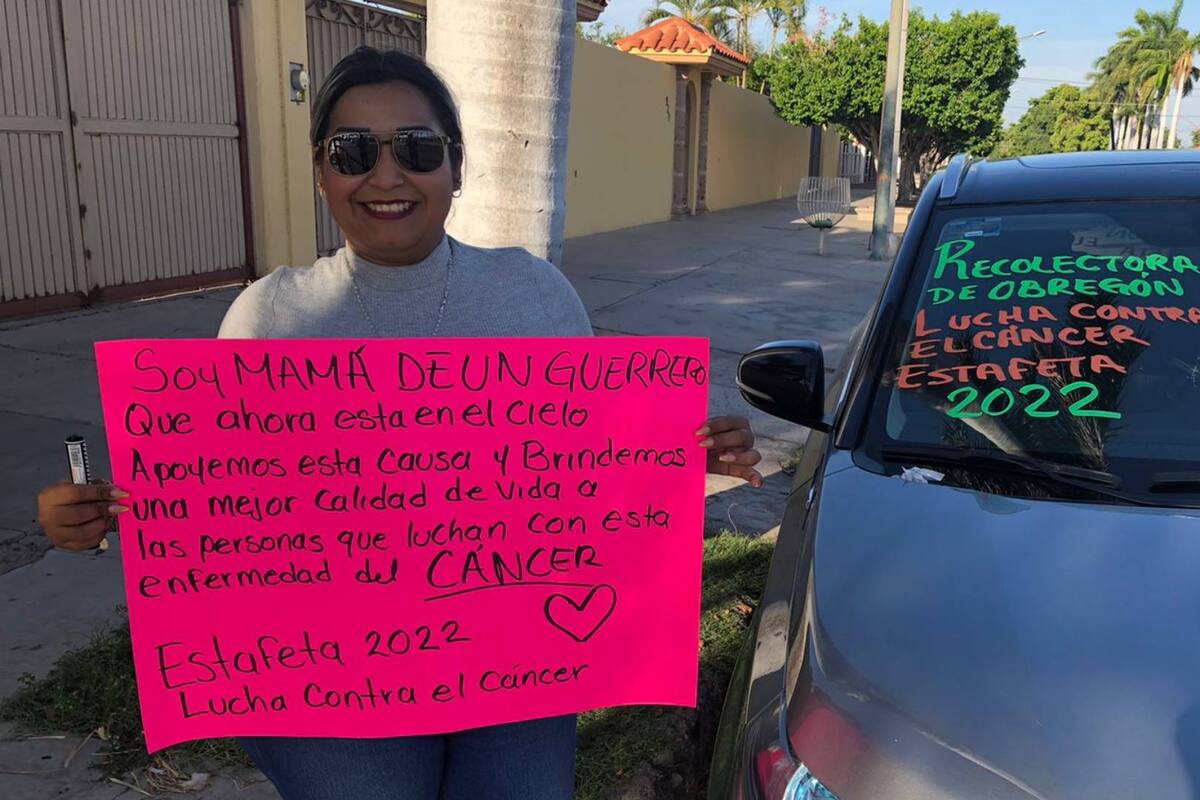 Soy MAMÁ DE UN GUERRERO
Que ahora esta en el cielo
Apoyemos esta causa y Brindemos
una mejor calidad de vida a
las personas que luchan con esta
enfermedad del CÁNCER
Estafeta 2022
Lucha Contra el cáncer
RECOLECTORA
DE OBREGÓN
LUCHA CONTRA
EL CÁNCER
ESTAFETA
2022